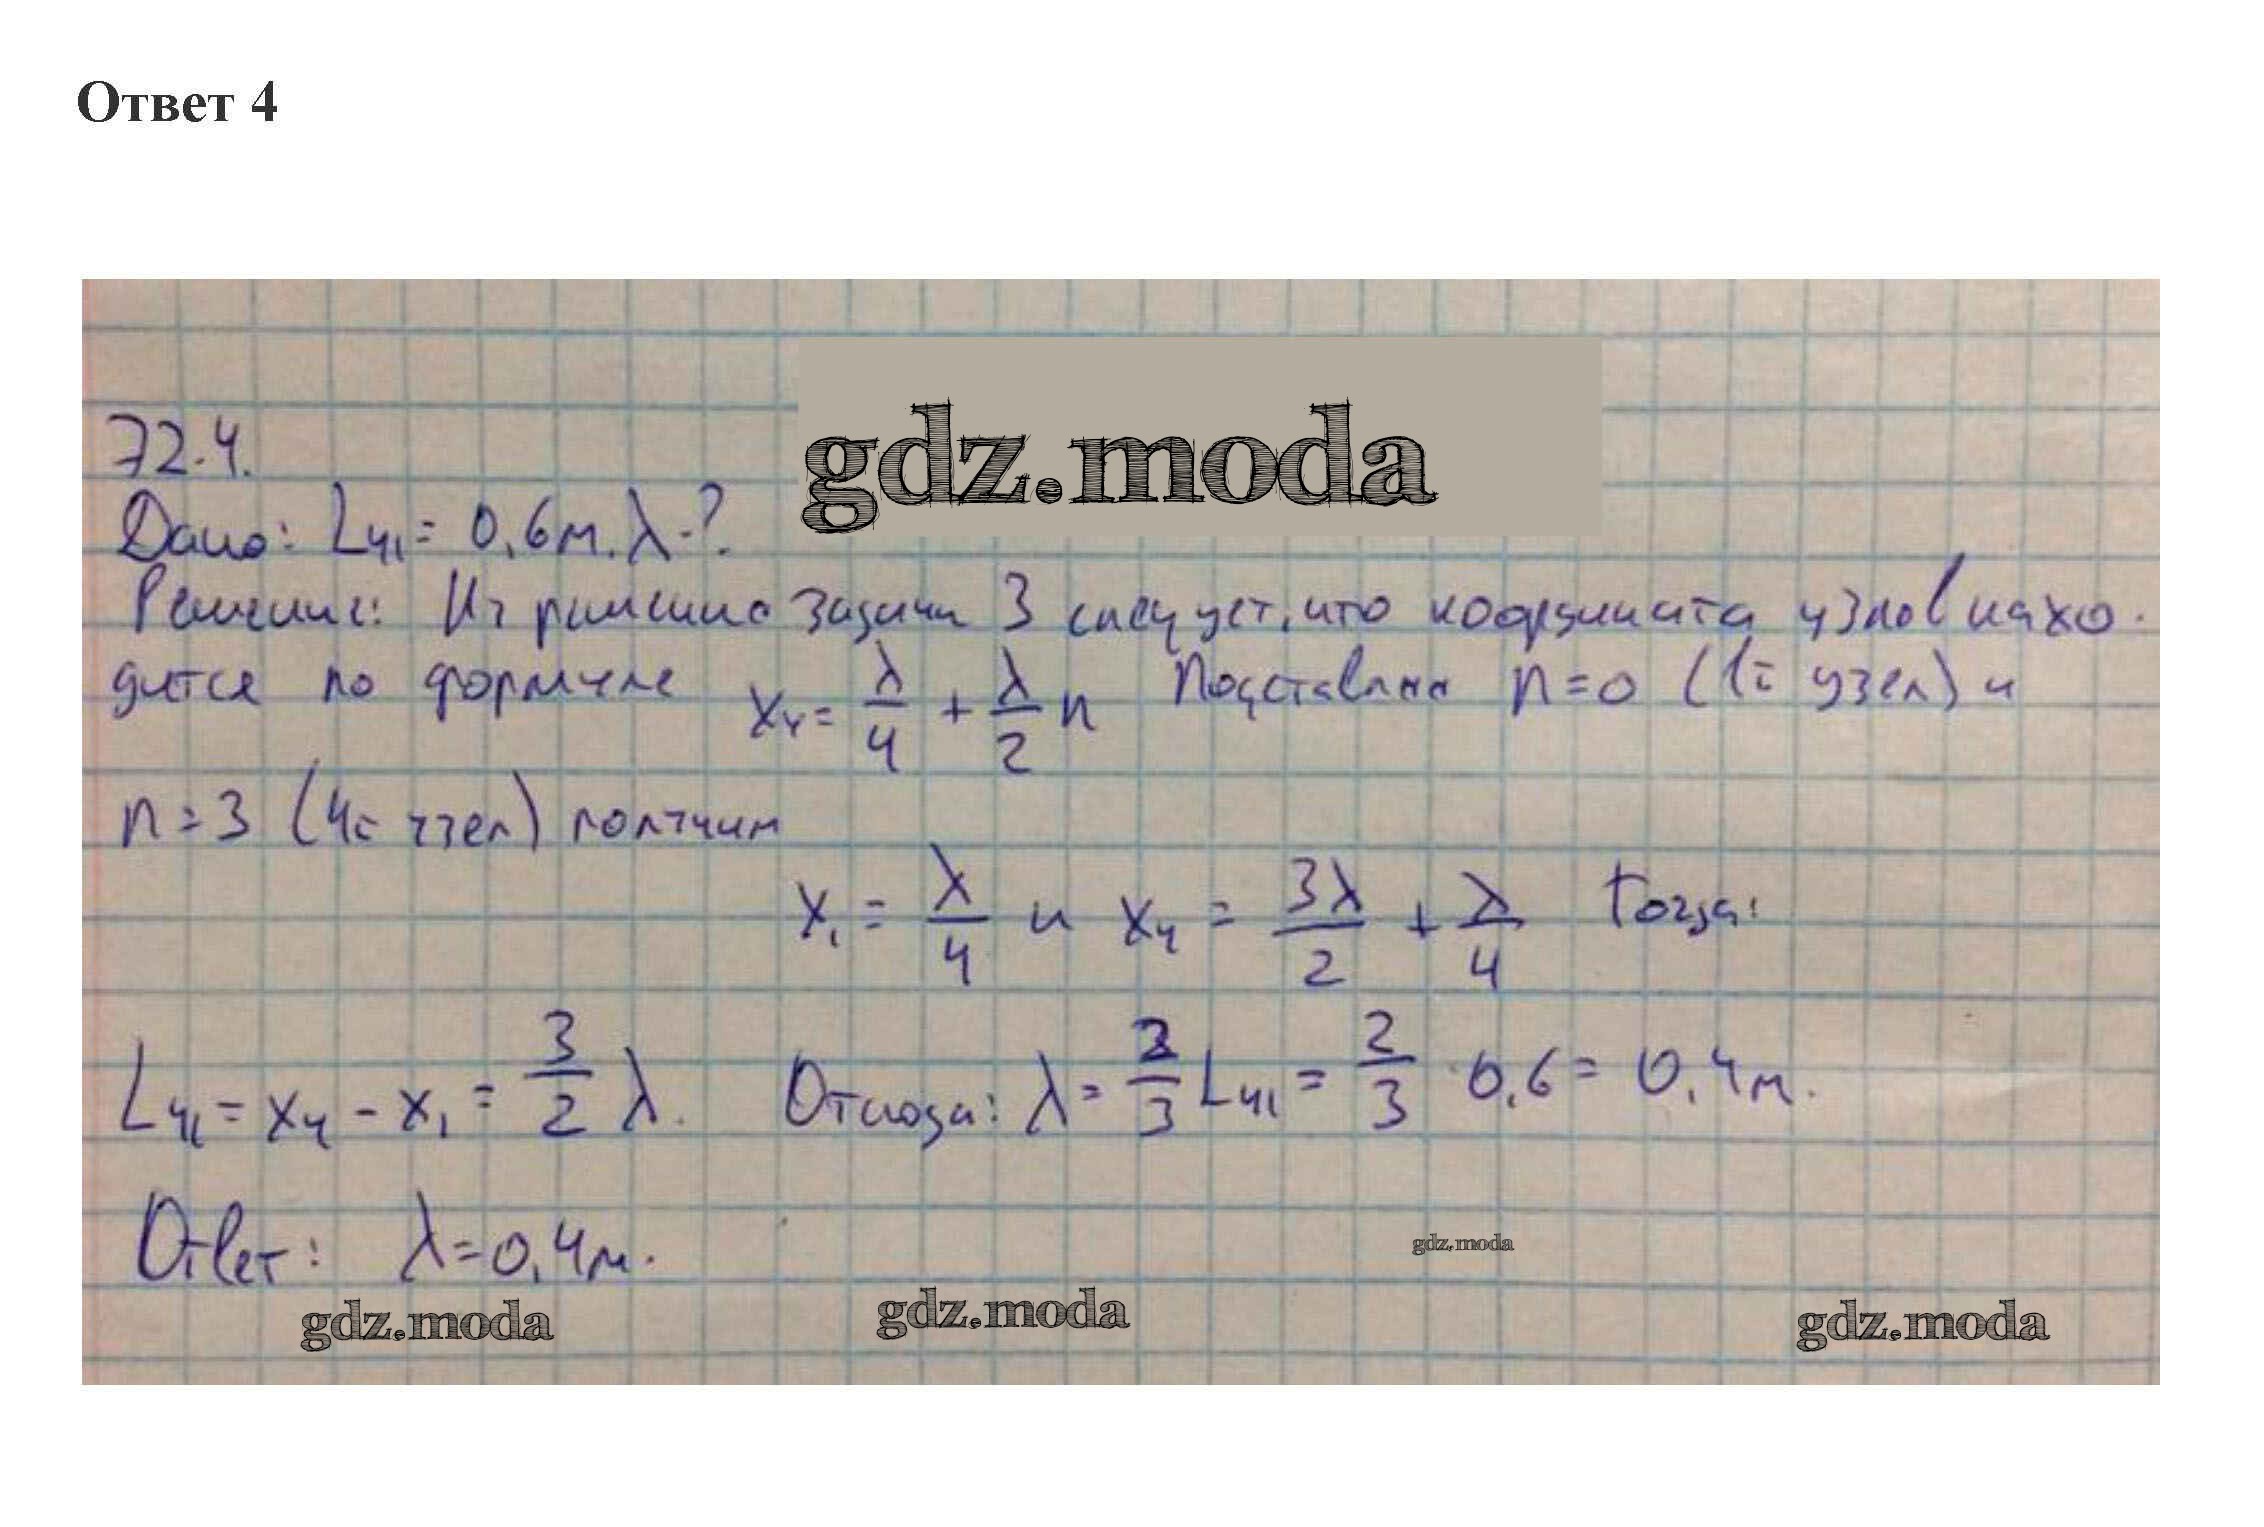 Ответ 4
gdz.moda
72.4.
Дано: L₄₁ = 0,6м. λ-?
Решение: Из решения задачи 3 следует, что координата узлов нахо-
дится по формуле xᵧ = λ/4 + λ/2 n Подставляя n=0 (1й узел) и
n=3 (4й узел) получим
x₁ = λ/4 и x₄ = 3λ/2 + λ/4 Тогда:
L₄₁ = x₄ - x₁ = 3/2 λ. Отсюда: λ = 2/3 L₄₁ = 2/3 · 0,6 = 0,4м.
Ответ: λ=0,4м.
gdz.moda
gdz.moda
gdz.moda
gdz.moda